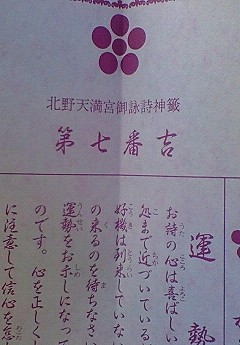 北野天満宮御詠詩神籤
第七番吉
運勢
お詩の心は喜ばしい
処まで近づいている
好機は到来していない
の来るのを待ちなさい
運勢をお示しになって
のです。心を正しくし
に注意して信心を怠